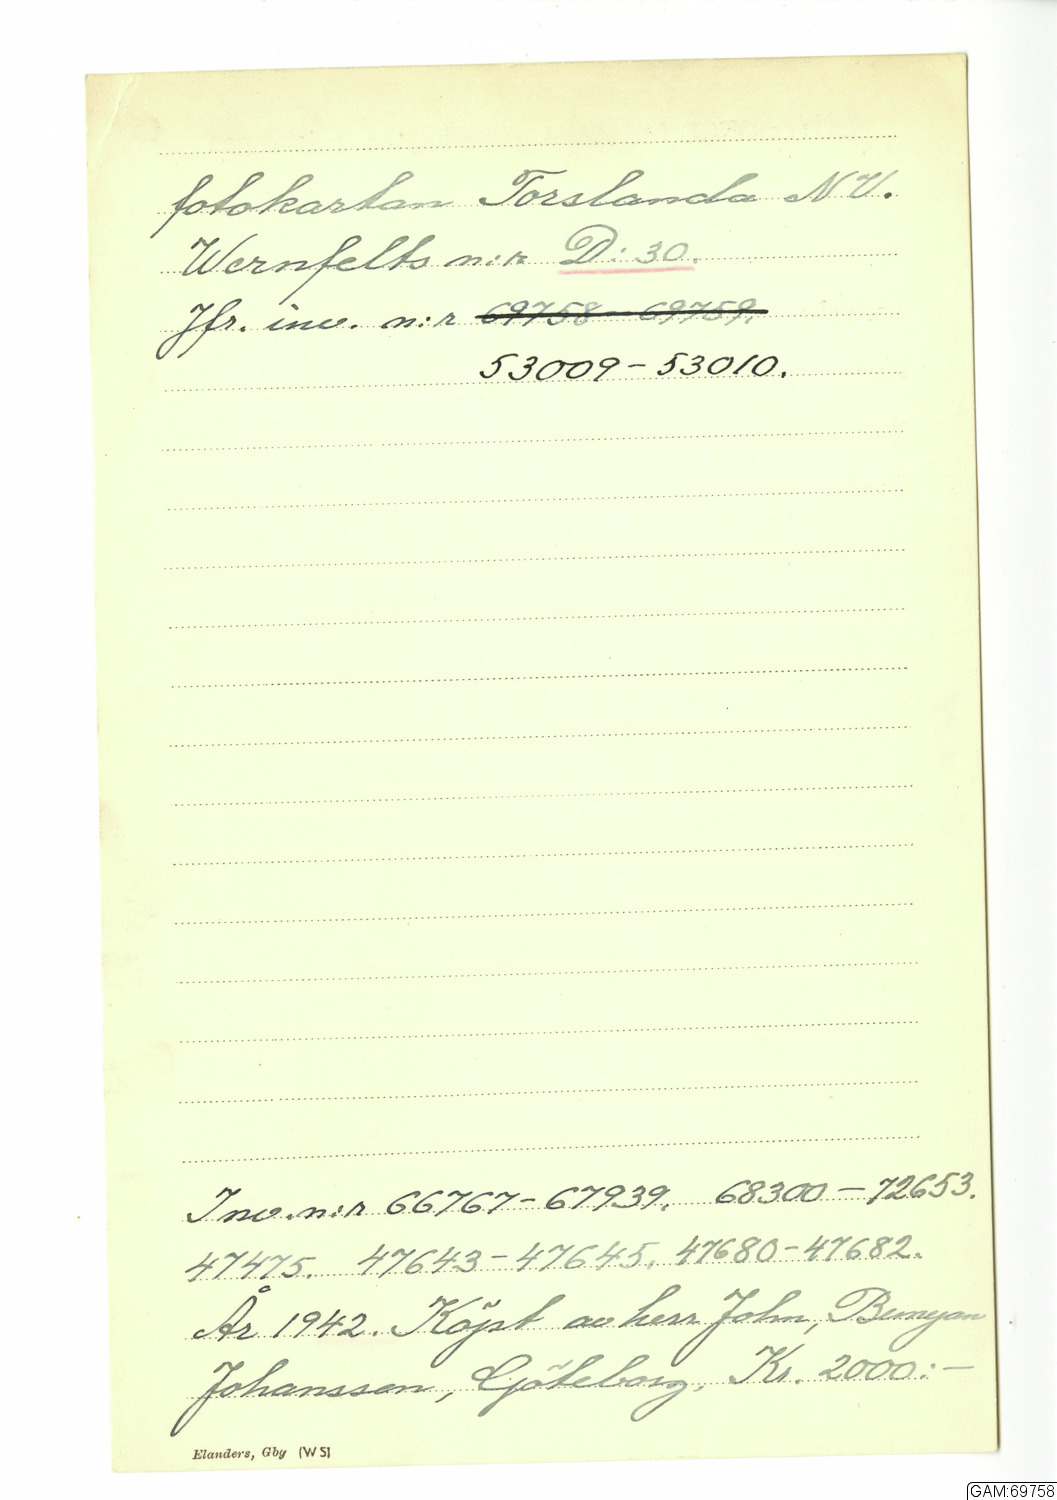 fotokartan Torslanda N V.
Wernfelts n:r D: 30.
Jfr. inv. n:r 69758 – 69759.
53009 – 53010.
Inv. n:r 66767 – 67939. 68300 – 72653.
47475. 47643 – 47645. 47680 – 47682.
År 1942. Köpt av herr John, Bunyan
Johansson, Göteborg. Kr. 2000:–
Elanders, Gby (W5)
GAM:69758